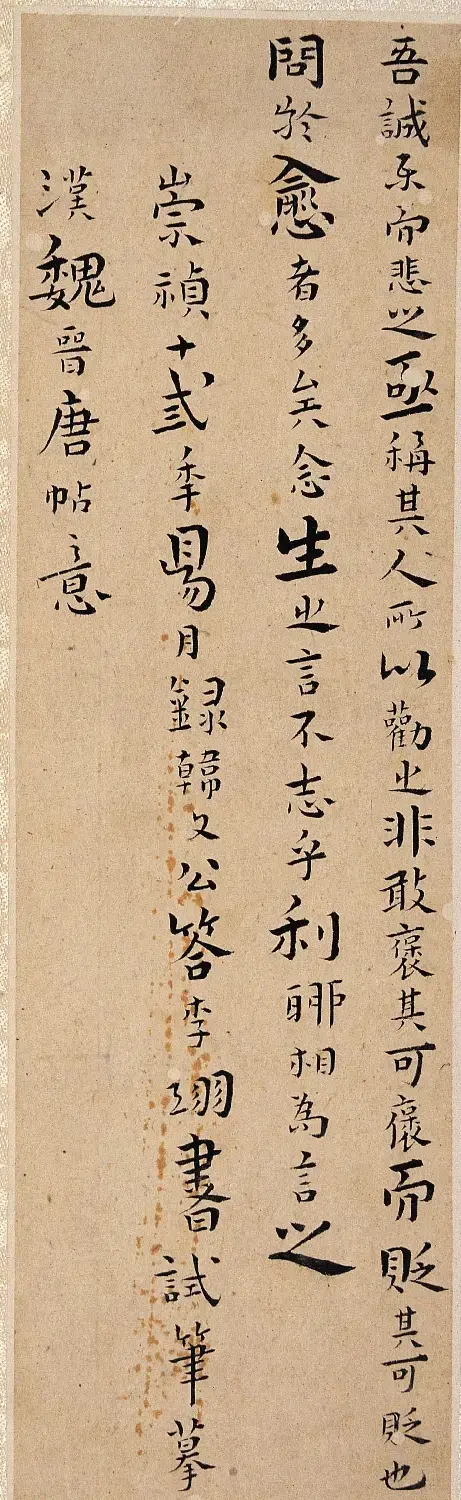 吾誠乐而悲之亟稱其人所以勸之非敢褒其可褒而貶其可貶也
問於愈者多矣念生之言不志乎利聊相為言之
崇禎十弍秊昜月錄韓文公答李翊書試筆摹
漢魏晉唐帖意